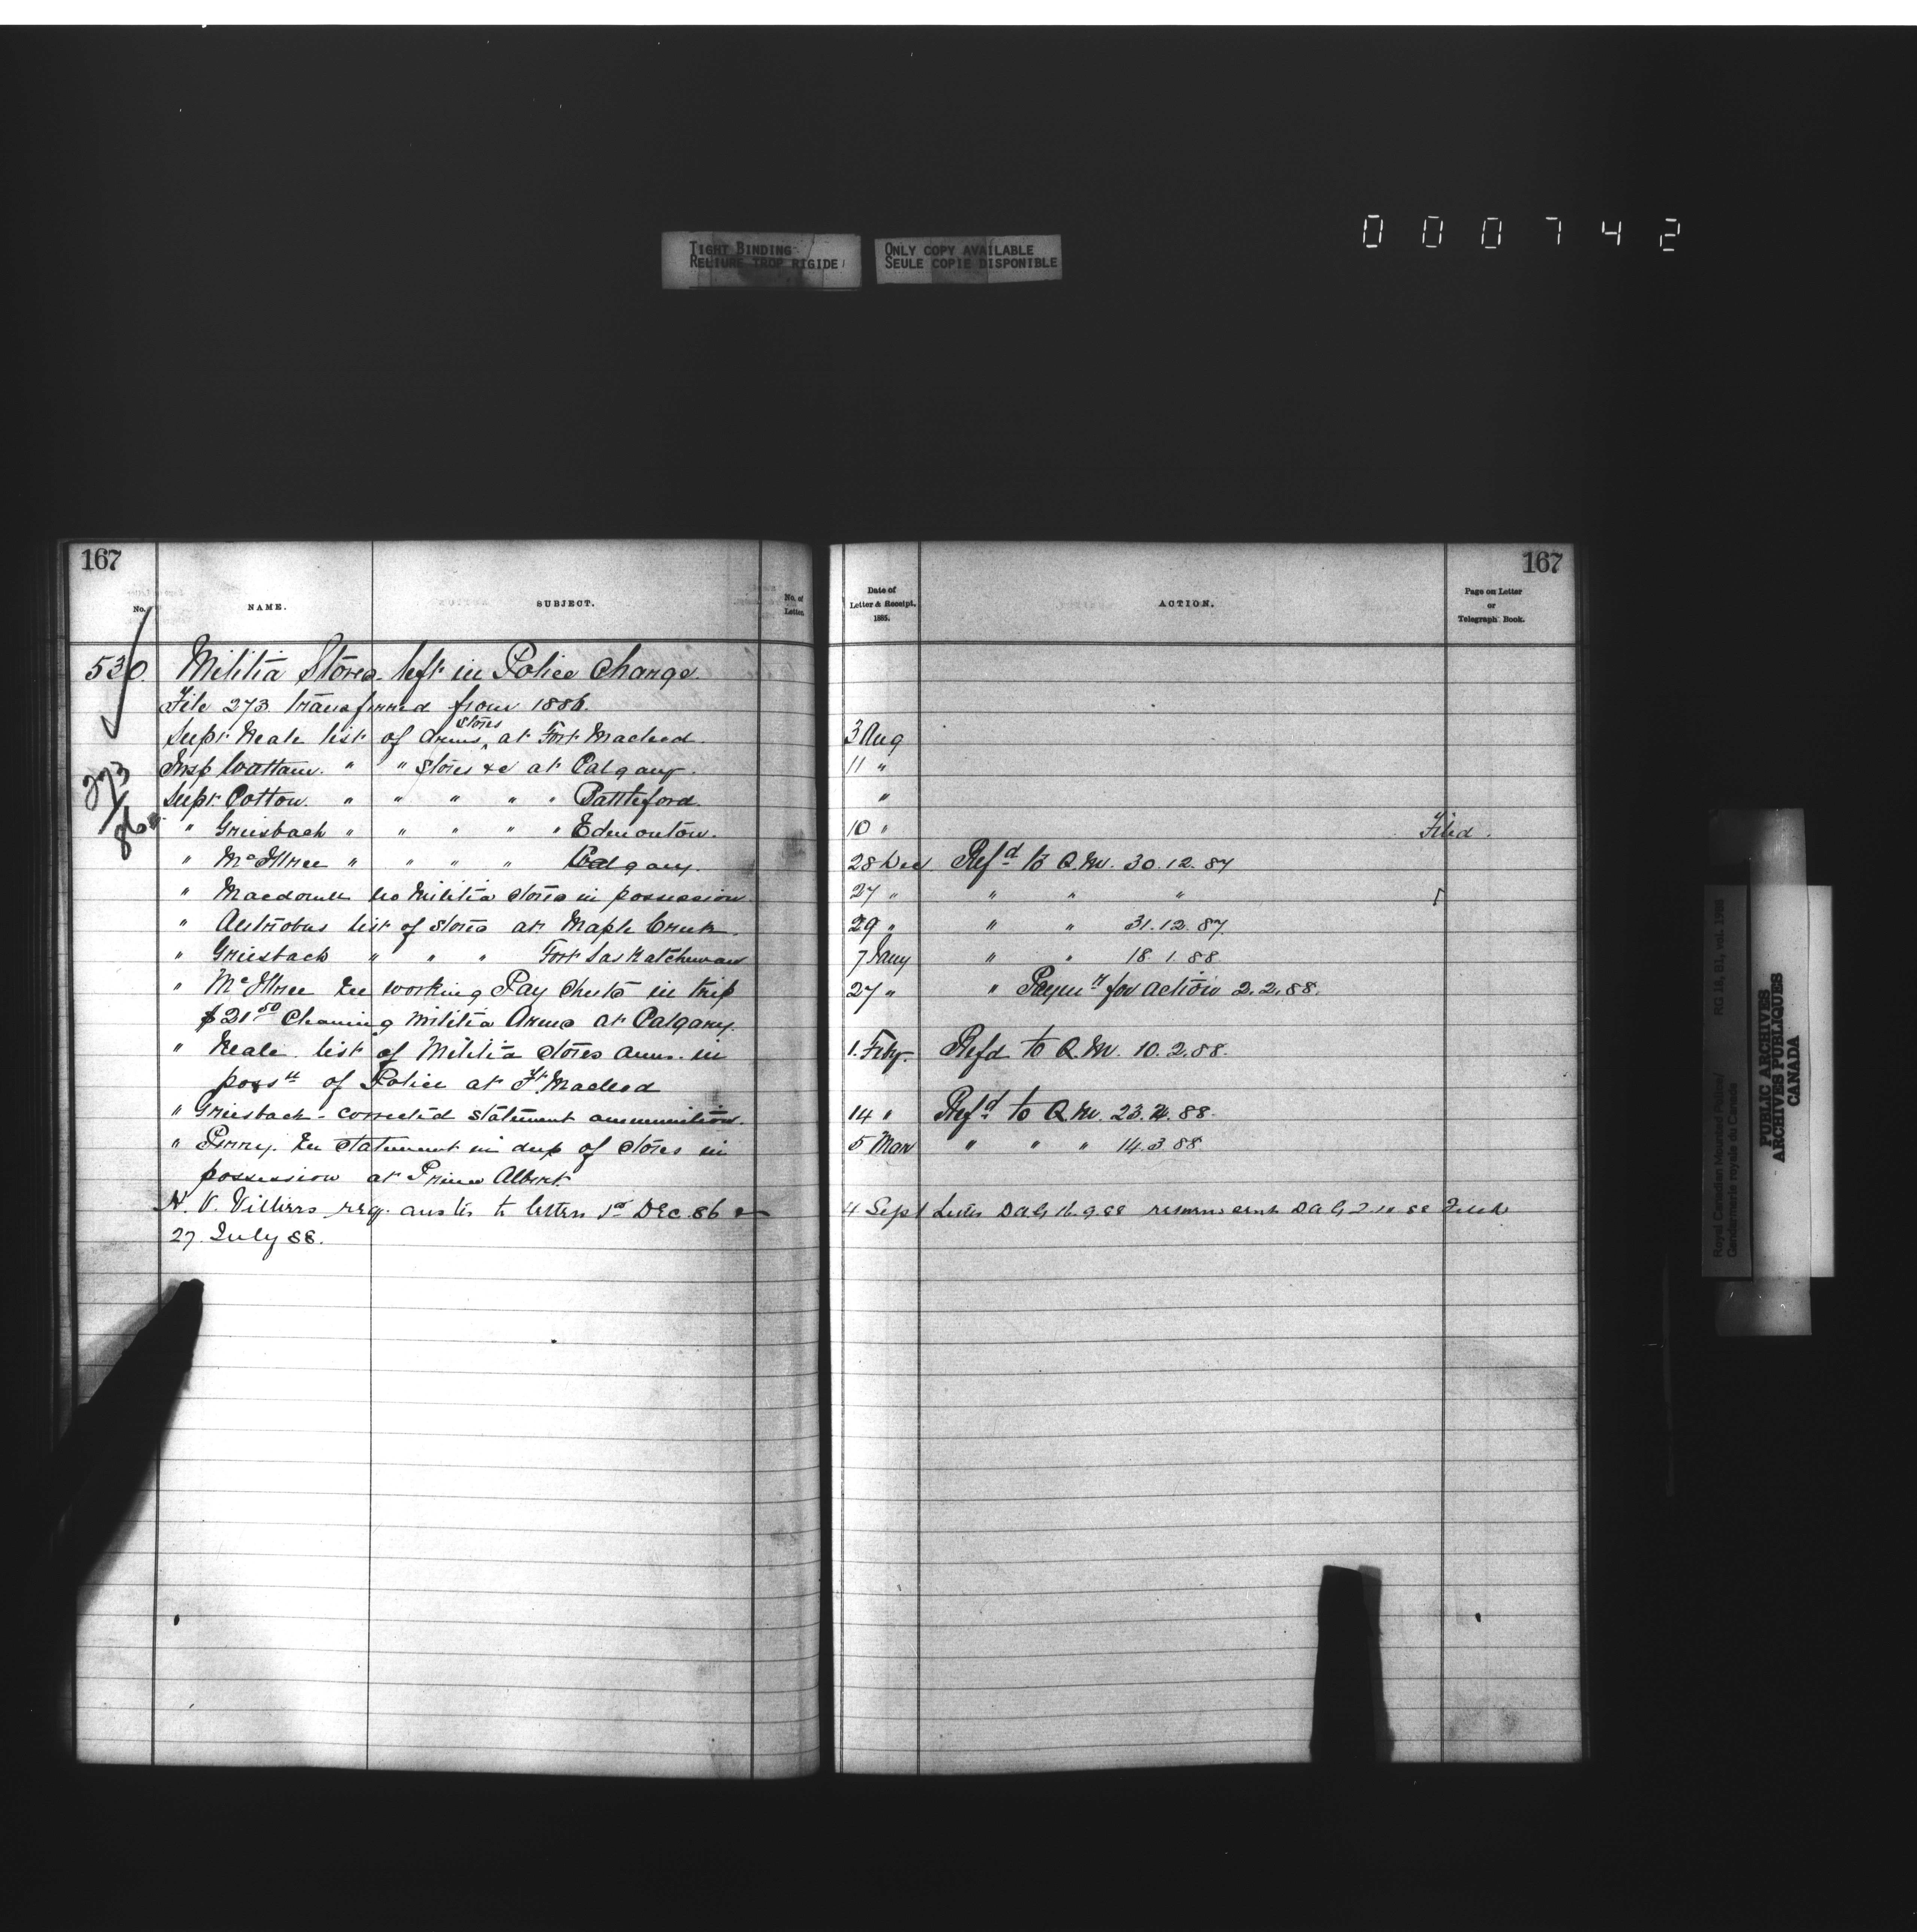 000742
TIGHT BINDING
RELIURE TROP RIGIDE
ONLY COPY AVAILABLE
SEULE COPIE DISPONIBLE
167
No. NAME. SUBJECT. No. of Letter.
530. Militia Stores left in Police Charge.
File 273 transferred from 1886.
Supt. Neale list of Arms, stores at Fort Macleod.
Insp Wattam. " " Stores &c at Calgary.
273/86
Supt. Cotton. " " " " " Battleford.
" Griesbach " " " " " Edmonton.
" McIllree " " " " Calgary.
" Macdonell no Militia stores in possession
" Antrobus list of stores at Maple Creek.
" Griesbach " " " Fort Saskatchewan
" McIllree working Pay in trip
$21 50 Cleaning Militia Arms at Calgary.
" Neale. list of Militia stores in
possn of Police at Ft. Macleod
" Griesbach - corrected statement ammunition.
" Perry. statement in dup of stores in
possession at Prince Albert
V. Villiers req. to letters 1st Dec. 86
27 July 88.
167
Date of Letter & Receipt. 1885. ACTION. Page on Letter or Telegraph Book.
3 Aug
11 "
"
10 " Filed.
28 Dec Refd to Q.M. 30.12.87
27 " " " "
29 " " " 31.12.87.
7 Jany " " 18.1.88
27 " " for action 2.2.88.
1. Feby. Refd to Q.M. 10.2.88.
14 " Refd to Q.M. 23.2.88.
5 Mar " " " 14.3.88
4 Sept 16.9.88
Royal Canadian Mounted Police/
Gendarmerie royale du Canada
RG 18, B1, vol. 1988
PUBLIC ARCHIVES
ARCHIVES PUBLIQUES
CANADA